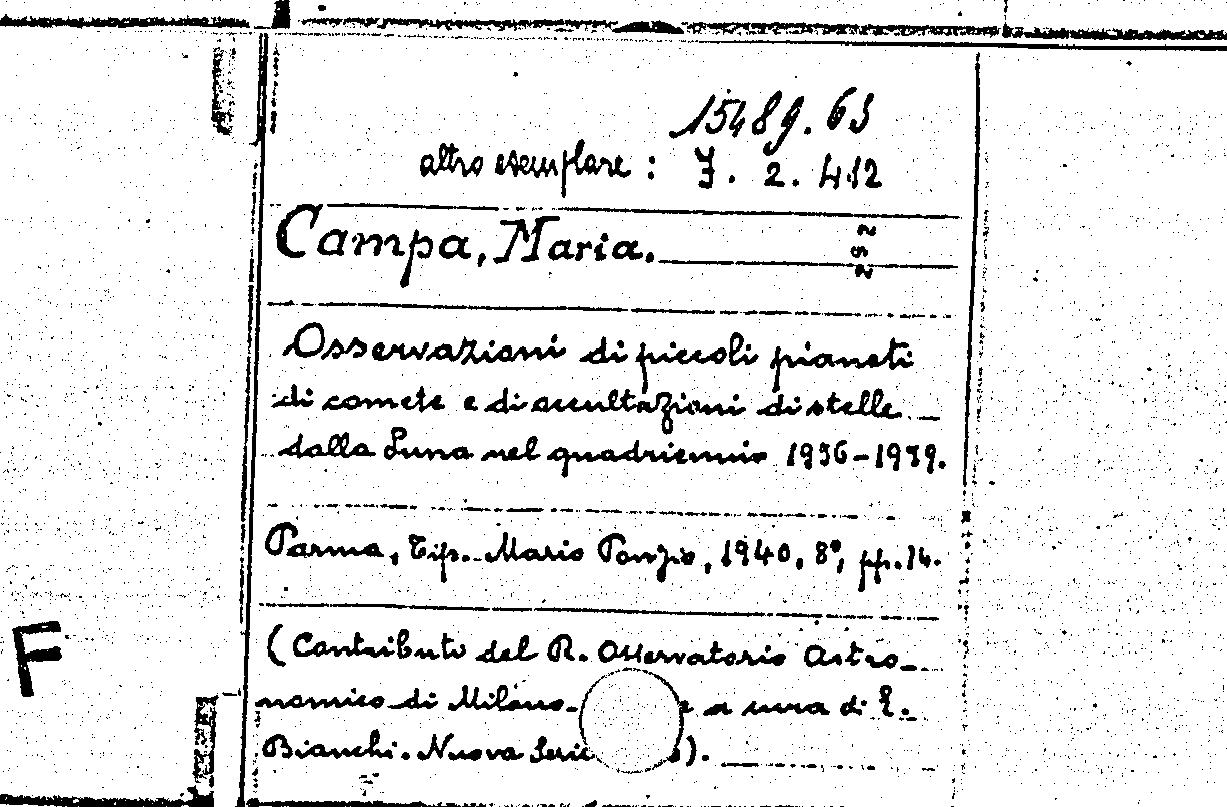 15489.63
altro esemplare: J. 2. 412
Campa, Maria.
252
Osservazioni di piccoli pianeti
di comete e di occultazioni di stelle
dalla Luna nel quadriennio 1936-1939.
Parma, Tip. Mario Ponzio, 1940, 8°, pp. 14.
(Contributi del R. Osservatorio Astro-
nomico di Milano- a cura di E.
Bianchi. Nuova Serie ).
F